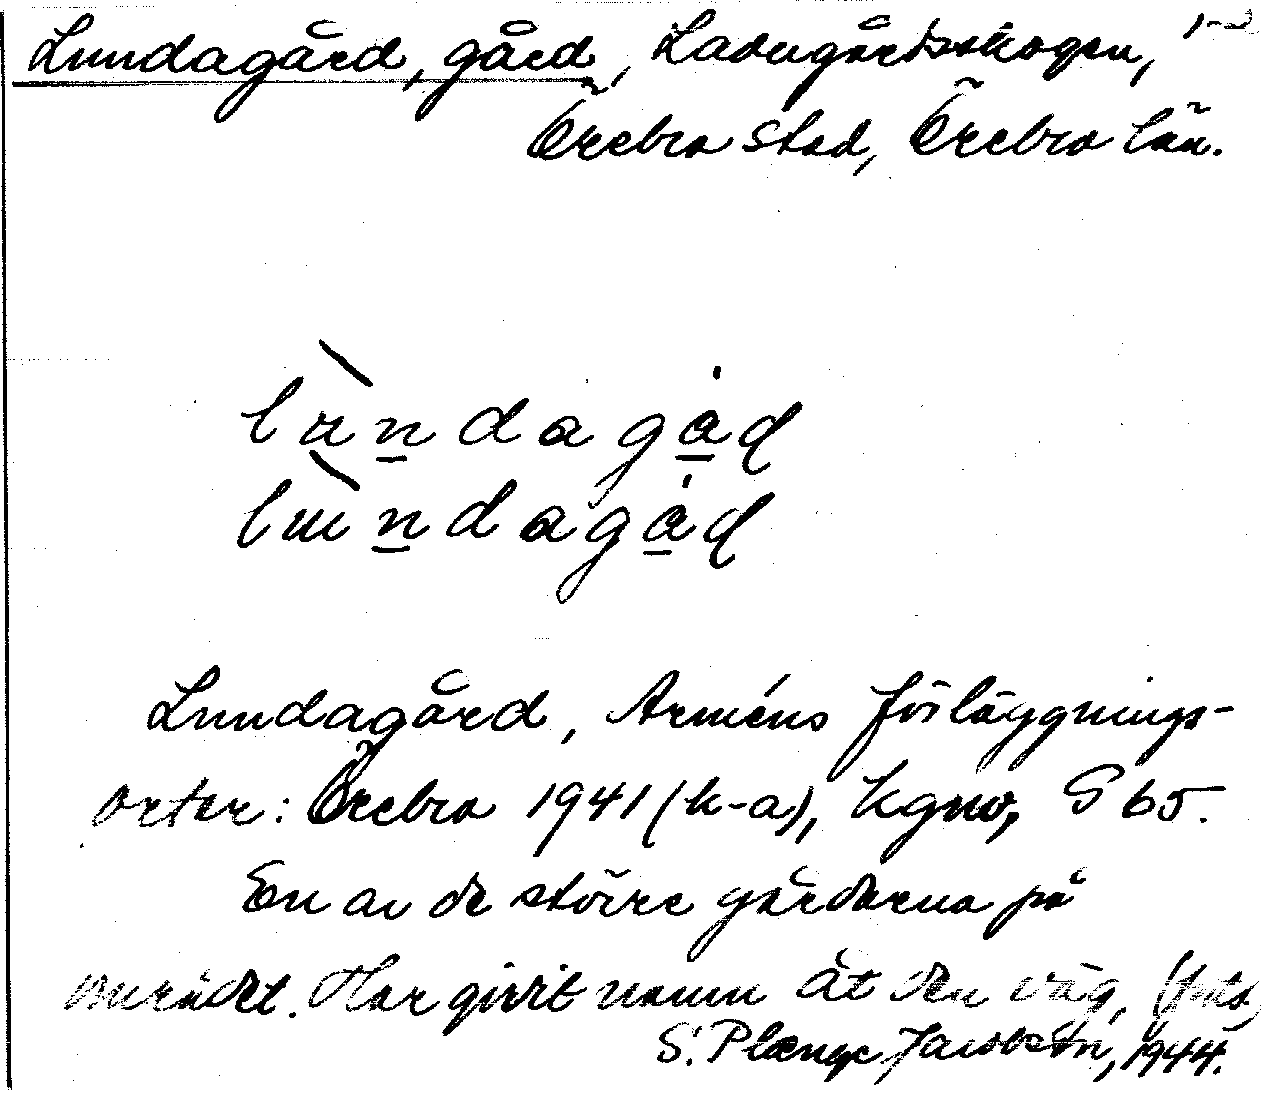 Lundagård, gård, Ladugårdsskogen, 1-2
Örebro stad, Örebro län.
lùndagåd
lùndagåd
Lundagård, Arméns förläggnings-
orter: Örebro 1941 (k-a), Kgmo, S 65.
En av de större gårdarna på
området. Har givit namn åt den väg, (forts.
S. Plænge Jacobson, 1944.